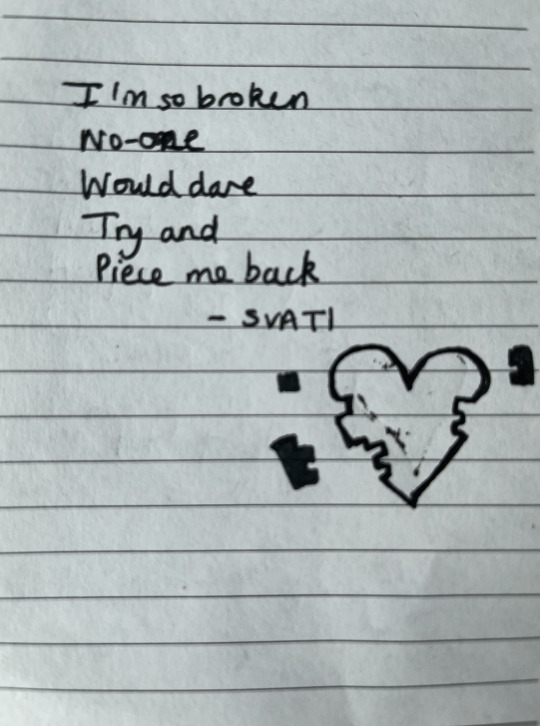 I'm so broken
No-one
Would dare
Try and
Piece me back
- SVATI